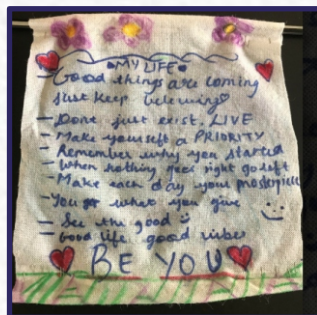 • MY LIFE •
– Good things are coming
Just keep believing
– Dont just exist, LIVE
– Make yourself a PRIORITY
– Remember why you started
– When nothing goes right go left
– Make each day your masterpiece
– You get what you give
– See the good
– Good life good vibes
BE YOU